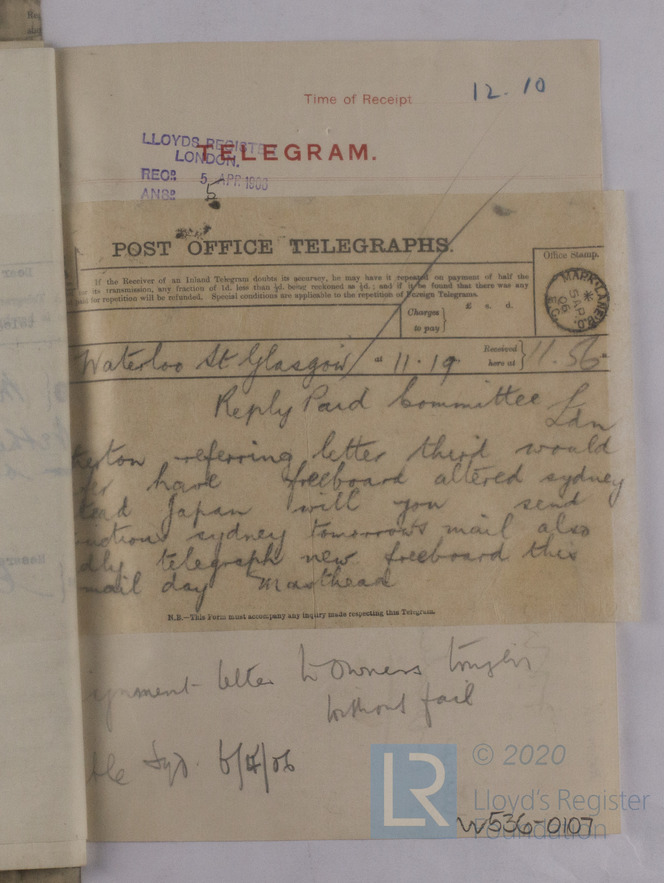 Time of Receipt 12.10
LLOYDS REGISTE
LONDON.
TELEGRAM.
RECD. 5 APR 1906
ANSD. 5
POST OFFICE TELEGRAPHS.
If the Receiver of an Inland Telegram doubts its accuracy, he may have it repeated on payment of half the
its transmission, any fraction of 1d. less than ½d. being reckoned as ½d.; and if it be found that there was any
repetition will be refunded. Special conditions are applicable to the repetition of Foreign Telegrams.
Office Stamp.
MARK LANE B.O.
AP 5
06
Charges to pay
£ s. d.
Waterloo St Glasgow at 11.19 Received here at 11.56
Reply Paid Committee Ldn
erton referring letter third would
er have freeboard altered sydney
tead Japan will you send
uctions sydney tomorrows mail also
dly telegraph new freeboard this
mail day Masthead
N.B.—This Form must accompany any inquiry made respecting this Telegram.
ignment letter to Owners
without fail
ble Syd. 6/4/06
LR
© 2020
Lloyd's Register
Foundation
W536-0107